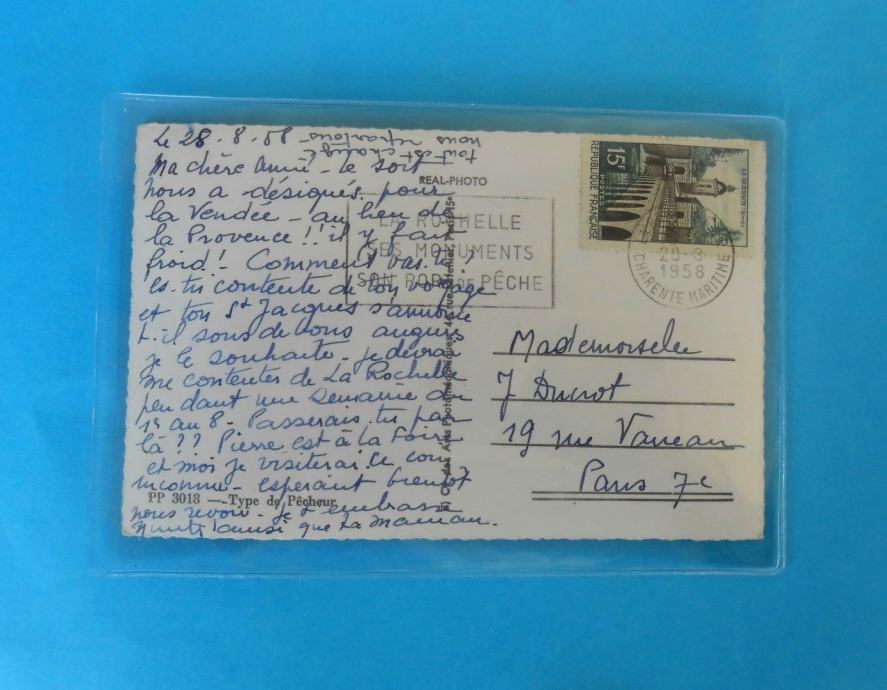 Le 28.8.58
tout est changé
nous repartons
Ma chère Annie - le sort
nous a désignés pour
la Vendée - au lieu de
la Provence !! il y fait
froid ! Comment vas-tu ?
es-tu contente de ton voyage
et ton St Jacques s'annonce
t-il sous de bons augures
je le souhaite - je devrai
me contenter de La Rochelle
pendant une semaine du
1er au 8 - Passerais-tu par
là ?? Pierre est à la Foire
et moi je visiterai ce coin
inconnu - esperant bientot
nous revoir - je t'embrasse
ainsi que ta maman.
REAL-PHOTO
PP 3018 — Type de Pêcheur
LA ROCHELLE
SES MONUMENTS
SON PORT DE PÊCHE
15F
POSTES
REPUBLIQUE FRANÇAISE
LE QUESNOY
1958
CHARENTE MARITIME
Mademoiselle
J Ducrot
19 rue Vaneau
Paris 7e